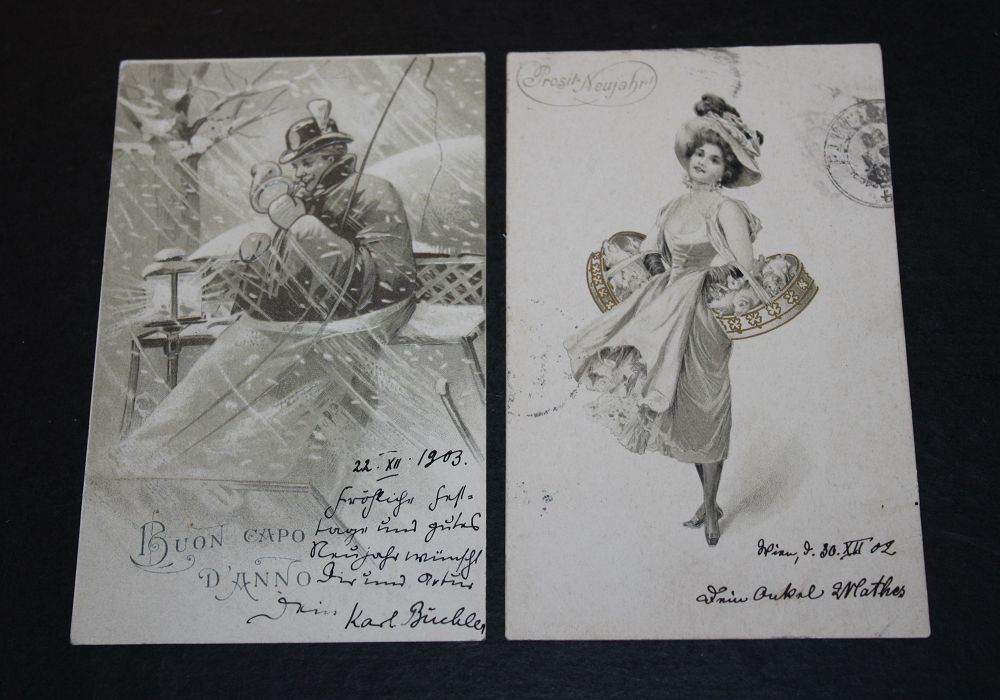 22. XII. 1903.
Fröhliche Fest-
tage und gutes
Neujahr wünscht
Dir und Artur
Dein
Karl Buchler
BUON CAPO
D'ANNO
Prosit Neujahr!
Wien, d. 30. XII 02
Dein Onkel Mathes